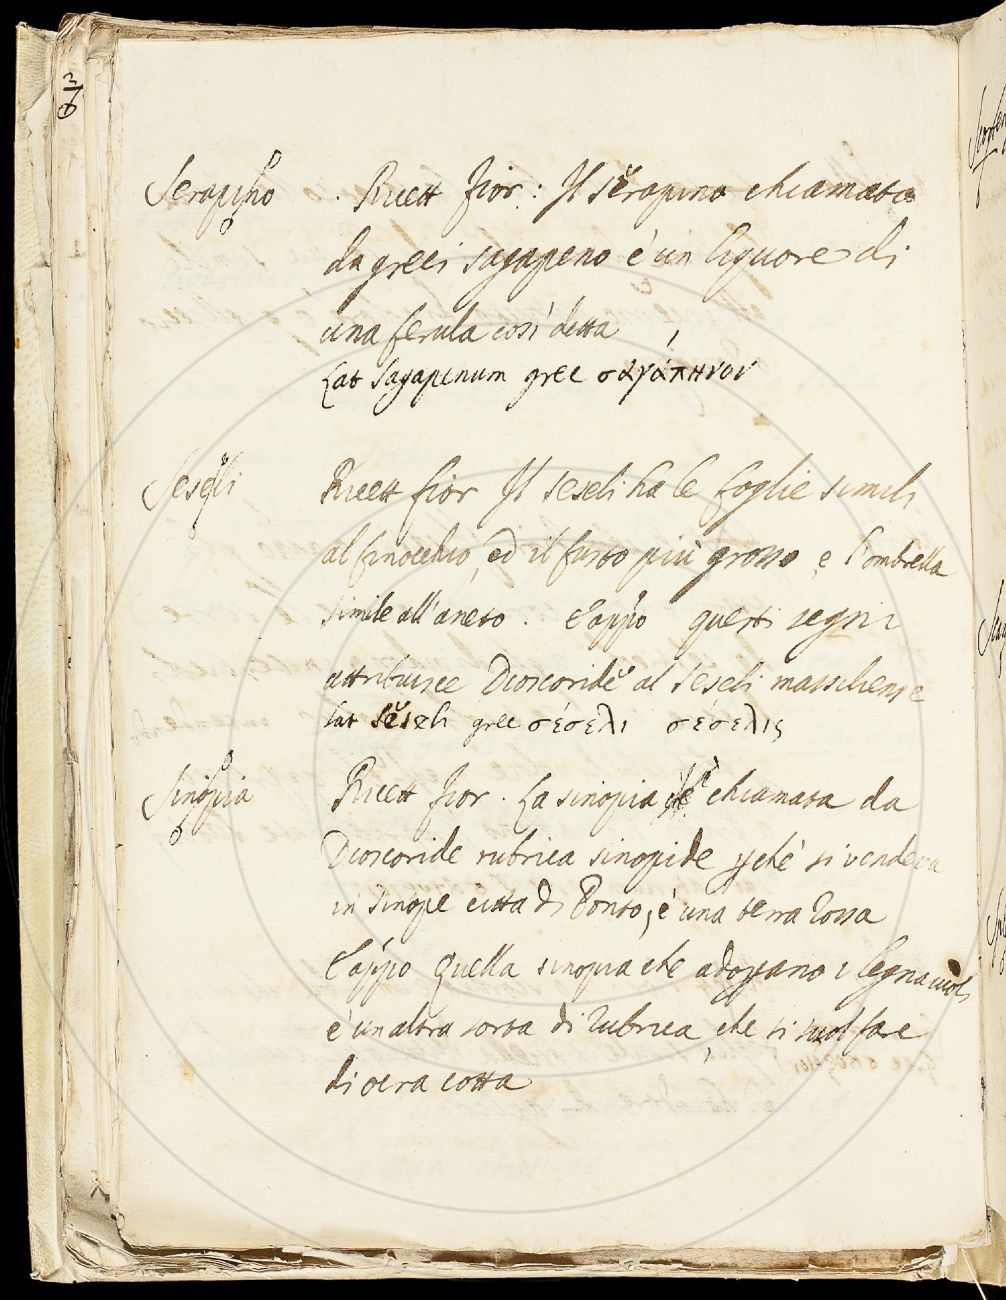 Serapino
Ricett fior: Il serapino chiamato
da greci sagapeno è un liquore di
una ferula così detta
Lat Sagapenum grec σαγάπηνον
Seseli
Ricett fior Il seseli ha le foglie simili
al finocchio, ed il fusto più grosso, e l'ombrella
simile all'aneto. E appo questi segni
attribuisce Dioscoride al seseli massiliense
Lat seseli grec σέσελι σέσελις
Sinopia
Ricett fior. La sinopia è chiamata da
Dioscoride rubrica sinopide pchè si vendeva
in Sinope città di Ponto, è una terra rossa
E appo Quella sinopia che adoprano i legnaioli
è un altra sorta di rubrica, che si suol fare
di ocra cotta